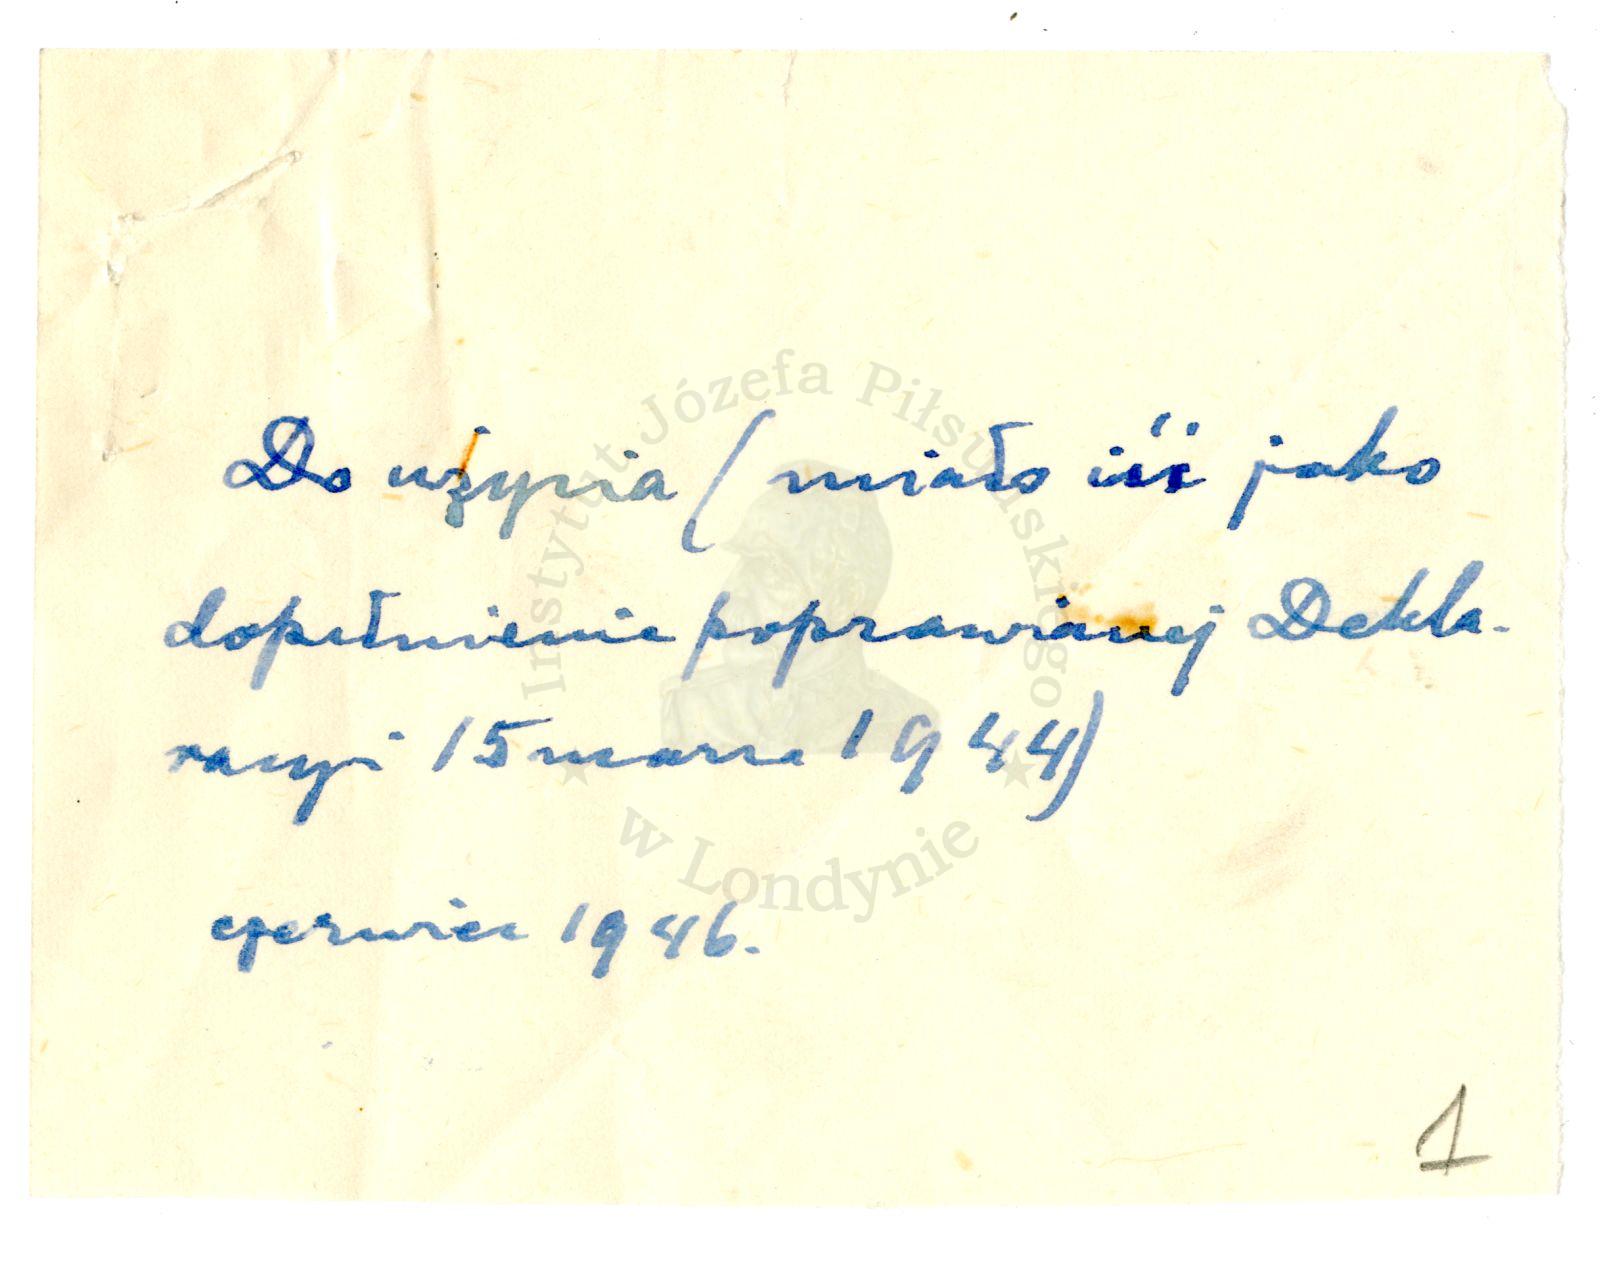 Do użycia (miało iść jako
dopełnienie poprawianej Dekla-
racyi 15 marca 1944)
czerwiec 1946.
1
Instytut Józefa Piłsudskiego
w Londynie